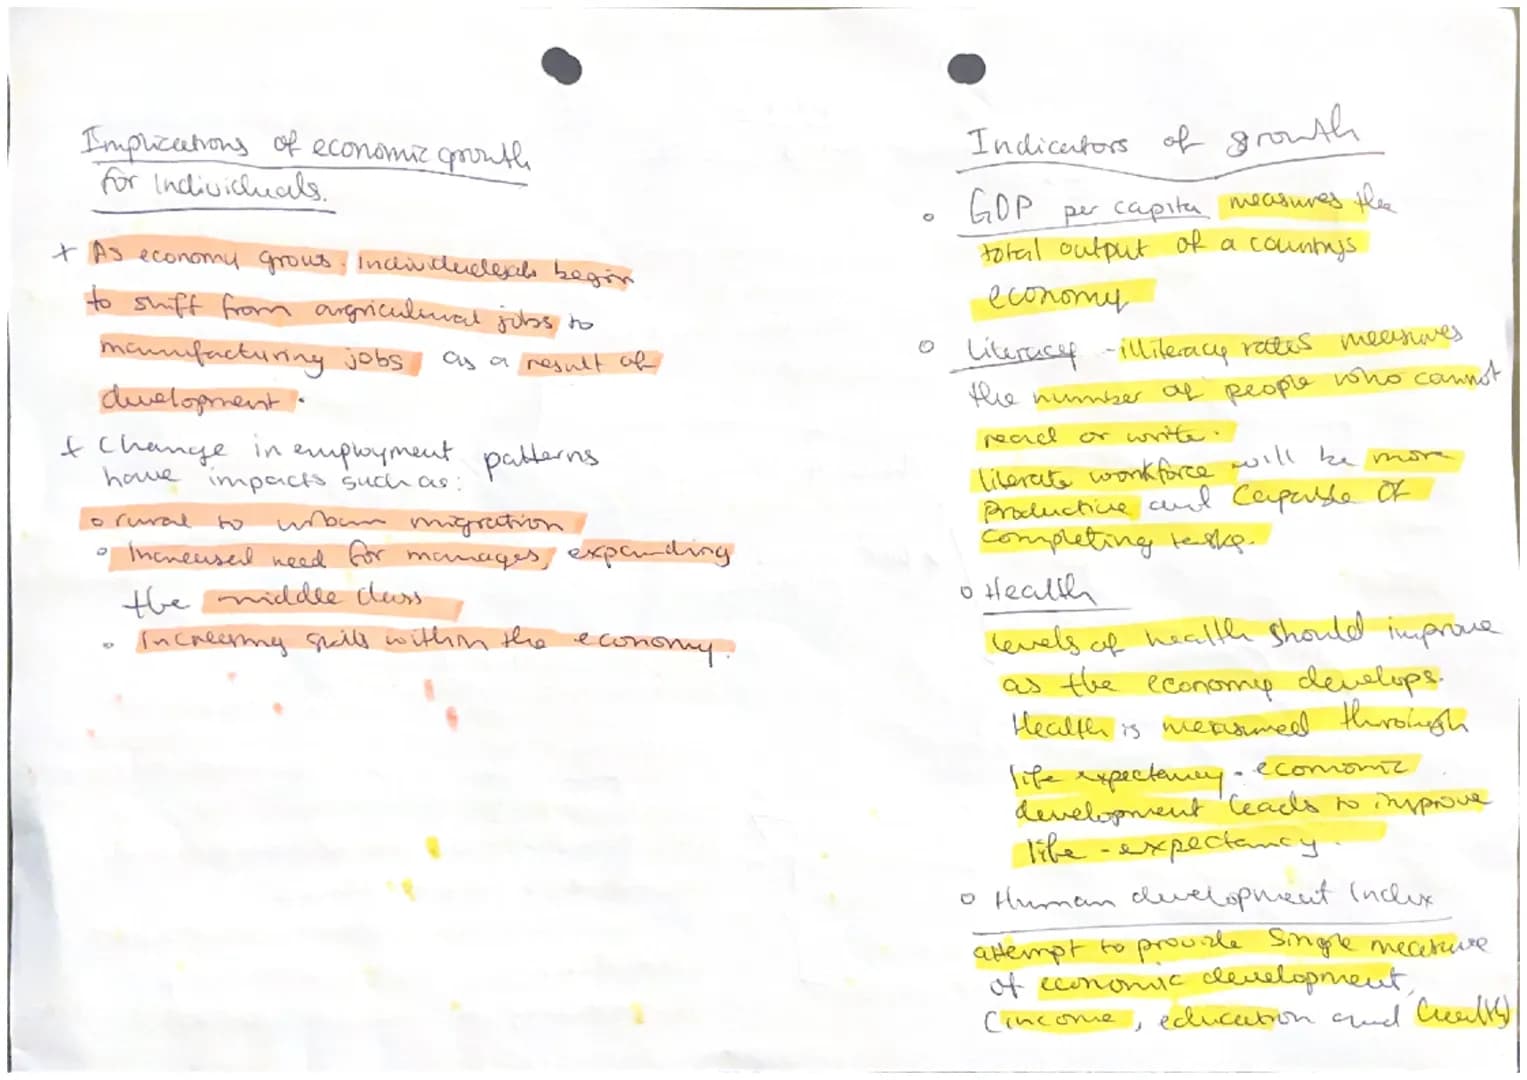 Implications of economic growth
for Individuals.
+ As economy grows. Individuals begin
to shift from argricultural jobs to
manufacturing jobs as a result of
development.
+ Change in employment patterns
have impacts such as:
o rural to urban migration
o Increased need for manages, expanding
the middle class
o Increasing skills within the economy.
Indicators of growth
o GDP per capita measures the
total output of a countrys
economy
o Literacy - illiteracy rates measures
the number of people who cannot
read or write.
literate workforce will be more
productive and Capable Of
completing tasks.
o Health
levels of health should improve
as the economy develops.
Health is measured through
life expectancy - economic
development leads to improve
life - expectancy.
o Human development Index
attempt to provide Single measure
of economic development,
(income, education and health)